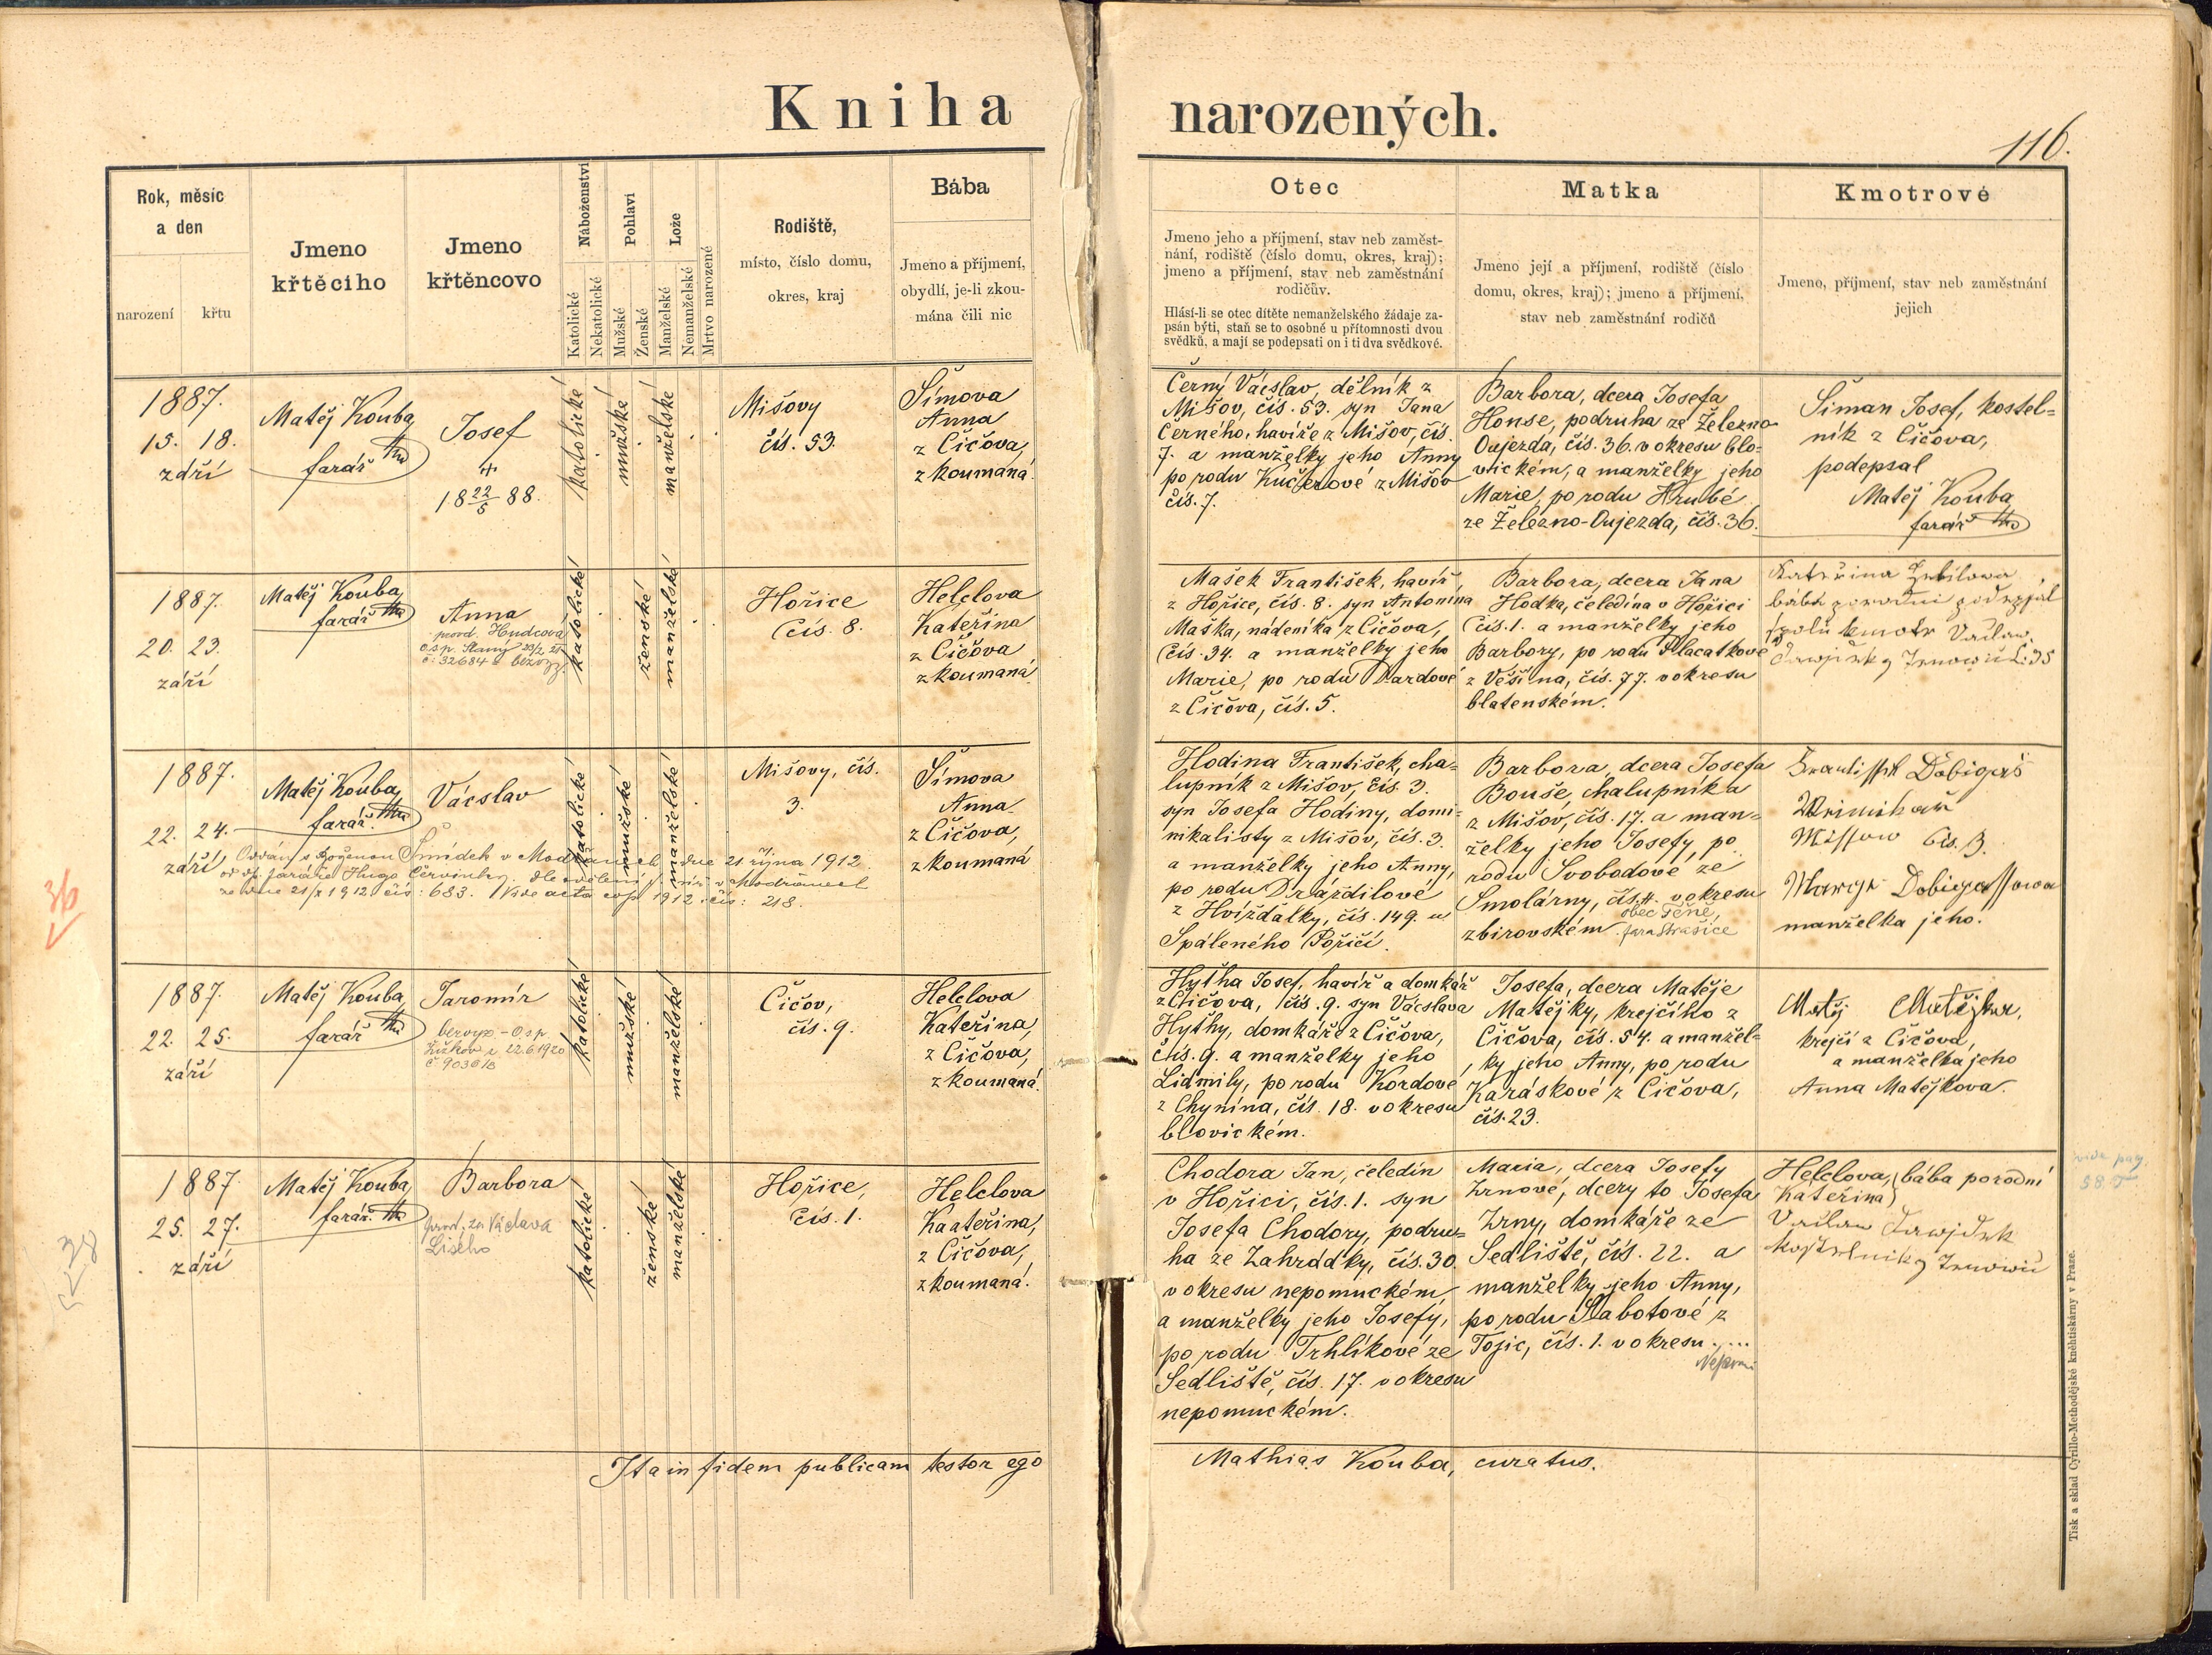 Kniha narozených.
116.
Rok, měsíc
a den
narození
křtu
Jmeno
křtěcího
Jmeno
křtěncovo
Náboženství
Katolické
Nekatolické
Pohlaví
Mužské
Ženské
Lože
Manželské
Nemanželské
Mrtvo narozené
Rodiště,
místo, číslo domu,
okres, kraj
Bába
Jmeno a příjmení,
obydlí, je-li zkou-
mána čili nic
Otec
Jmeno jeho a příjmení, stav neb zaměst-
nání, rodiště (číslo domu, okres, kraj);
jmeno a příjmení, stav neb zaměstnání
rodičův.
Hlásí-li se otec dítěte nemanželského žádaje za-
psán býti, staň se to osobné u přítomnosti dvou
svědků, a mají se podepsati on i ti dva svědkové.
Matka
Jmeno její a příjmení, rodiště (číslo
domu, okres, kraj); jmeno a příjmení,
stav neb zaměstnání rodičů
Kmotrové
Jmeno, příjmení, stav neb zaměstnání
jejich
1887.
15. 18.
září
Matěj Kouba
farář
Josef
18 22/5 88.
katolické
mužské
manželské
Mišovy
čís. 53.
Šímova
Anna
z Čičova,
zkoumaná.
Černý Vácslav, dělník z
Mišov, čís. 53. syn Jana
Černého, havíře z Mišov, čís.
7. a manželky jeho Anny
po rodu Kučerové z Mišov
čís. 7.
Barbora, dcera Josefa
Honse, podruha ze Železno-
Oujezda, čís. 36. v okresu blo-
vickém, a manželky jeho
Marie, po rodu Hrubé
ze Železno-Oujezda, čís. 36.
Šiman Josef, kostel-
ník z Čičova,
podepsal
Matěj Kouba
farář
1887.
20. 23.
září
Matěj Kouba
farář
Anna
provd. Hudcová
č. 32684 bezvyz.
katolické
ženské
manželské
Hořice
čís. 8.
Helclova
Kateřina
z Čičova
zkoumaná
Mašek František, havíř
z Hořice, čís. 8. syn Antonína
Maška, nádeníka z Čičova,
čís. 34. a manželky jeho
Marie, po rodu Dardové
z Čičova, čís. 5.
Barbora, dcera Jana
Hodka, čeledína v Hořici
čís. 1. a manželky jeho
Barbory, po rodu Placatkové
z Věšína, čís. 77. v okresu
blatenském.
Kateřina
bába
kmotr Václav
1887.
22. 24.
září
Matěj Kouba
farář
Vácslav
Oddán s Boženou Šmídek v Modřanech dne 21 října 1912
od dp. faráře Hugo Červinky
ze dne 21/x 1912 čís: 683. Vide acta cop 1912 čís: 218.
katolické
mužské
manželské
Mišovy, čís.
3.
Šímova
Anna
z Čičova,
zkoumaná
Hodina František, cha-
lupník z Mišov, čís. 3.
syn Josefa Hodiny, domi-
nikalisty z Mišov, čís. 3.
a manželky jeho Anny,
po rodu Drázdilové
z Hvížďálky, čís. 149. u
Spáleného Poříčí.
Barbora, dcera Josefa
Bouše, chalupníka
z Mišov, čís. 17. a man-
želky jeho Josefy, po
rodu Svobodové ze
Smolárny, čís. v okresu
obec Těně,
zbirovském fara Strašice
Dobigeš
Missow čis. 3.
Dobigessowa
manželka jeho.
1887.
22. 25.
září
Matěj Kouba
farář
Jaromír
bezvyz - Osp.
Žižkov z 22.6.1920
katolické
mužské
manželské
Čičov,
čís. 9.
Helclova
Kateřina,
z Čičova,
zkoumaná.
Hytha Josef, havíř a domkář
z Čičova, čís. 9. syn Vácslava
Hythy, domkáře z Čičova,
čís. 9. a manželky jeho
Lidmily, po rodu Kordové
z Chynína, čís. 18. v okresu
blovickém.
Josefa, dcera Matěje
Matějky, krejčího z
Čičova, čís. 54. a manžel-
ky jeho Anny, po rodu
Karáskové z Čičova,
čís. 23.
Matěj Matějka,
krejčí z Čičova,
a manželka jeho
Anna Matějkova.
1887.
25. 27.
září
Matěj Kouba
farář
Barbora
provd. za Václava
Lisého
katolické
ženské
manželské
Hořice,
čís. 1.
Helclova
Kaateřina,
z Čičova,
zkoumaná.
Chodora Jan, čeledín
v Hořici, čís. 1. syn
Josefa Chodory, podru-
ha ze Zahrádky, čís. 30.
v okresu nepomuckém,
a manželky jeho Josefy,
po rodu Trhlíkové ze
Sedliště, čís. 17. v okresu
nepomuckém.
Maria, dcera Josefy
Zrnové, dcery to Josefa
Zrny, domkáře ze
Sedliště, čís. 22. a
manželky jeho Anny,
po rodu Slabotové z
Tojic, čís. 1. v okresu ....
Helclova, bába porodní
Kateřina
Václav
vide pag.
36
38
Ita in fidem publicam testor ego
Mathias Kouba, curatus.
Tisk a sklad Cyrillo-Methodějské kněhtiskárny v Praze.